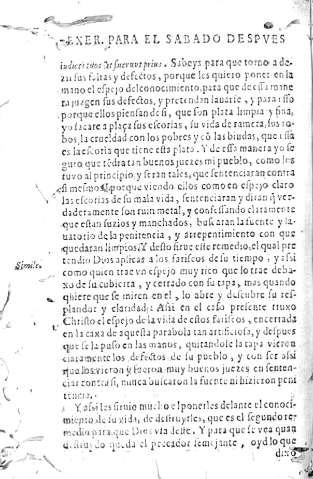 EXER. PARA EL SABADO DESPVES
iudices tuos vt fuerunt prius. Sabeys para que torno a de-
zir sus faltas y defectos, porque les quiero poner en la
mano el espejo del conocimiento, para que de essa mane
ra juzgen sus defectos, y pretendan lauarse, y para esso
porque ellos piensan de si, que son plata limpia y fina,
yo sacare a plaça sus escorias, su vida de ramera, sus ro-
bos, la crueldad con los pobres y cõ las biudas, que essa
es la escoria que tiene esta plata. Y de essa manera yo se
guro que tẽdrã tan buenos juezes mi pueblo, como los
tuvo al principio y seran tales, que sentenciaran contra
si mesmos, porque viendo ellos como en espejo claro
las escorias de su mala vida, sentenciaran y diran q̃ ver-
daderamente son ruin metal, y confessando claramente
que estan suzios y manchados, buscaran la fuente y la-
uatorio de la penitencia, y arrepentimiento con que
quedaran limpios. Y desto sirue este remedio, el qual pre
tendio Dios aplicar a los fariseos de su tiempo, y assi
Simile.
como quien trae vn espejo muy rico que lo trae deba-
xo de su cubierta, y cerrado con su tapa, mas quando
quiere que se miren en el, lo abre y descubre su res-
plandor y claridad: Assi en el caso presente truxo
Christo el espejo de la vida de estos fariseos, encerrada
en la caxa de aquesta parabola tan artificiosa, y despues
que se la puso en las manos, quitandole la tapa vieron
claramente los defectos de su pueblo, y con ser assi
que los vieron y fueron muy buenos juezes en senten-
ciar contra si, nunca buscaron la fuente ni hizieron peni
tencia.
Y assi les siruio mucho el ponerles delante el conoci-
miento de su vida, de destruyrles, que es el segundo re-
medio para que Dios vsa deste. Y para que se vea quan
destruydo queda el pecador semejante, oyd lo que
dixo